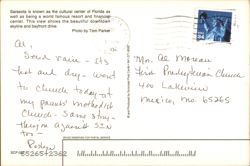 Sarasota is known as the cultural center of Florida as
well as being a world famous resort and financial
center. This view shows the beautiful downtown
skyline and bayfront drive.
Photo by Tom Parker
Al,
Send rain - It's
hot and dry - went
to church today at
my parents' Methodist
Church - Same story -
they're against sin
too -
65265+2362
Mr. Al Moreau
First Presbyterian Church
400 Lakeview
Mexico, Mo. 65265
34